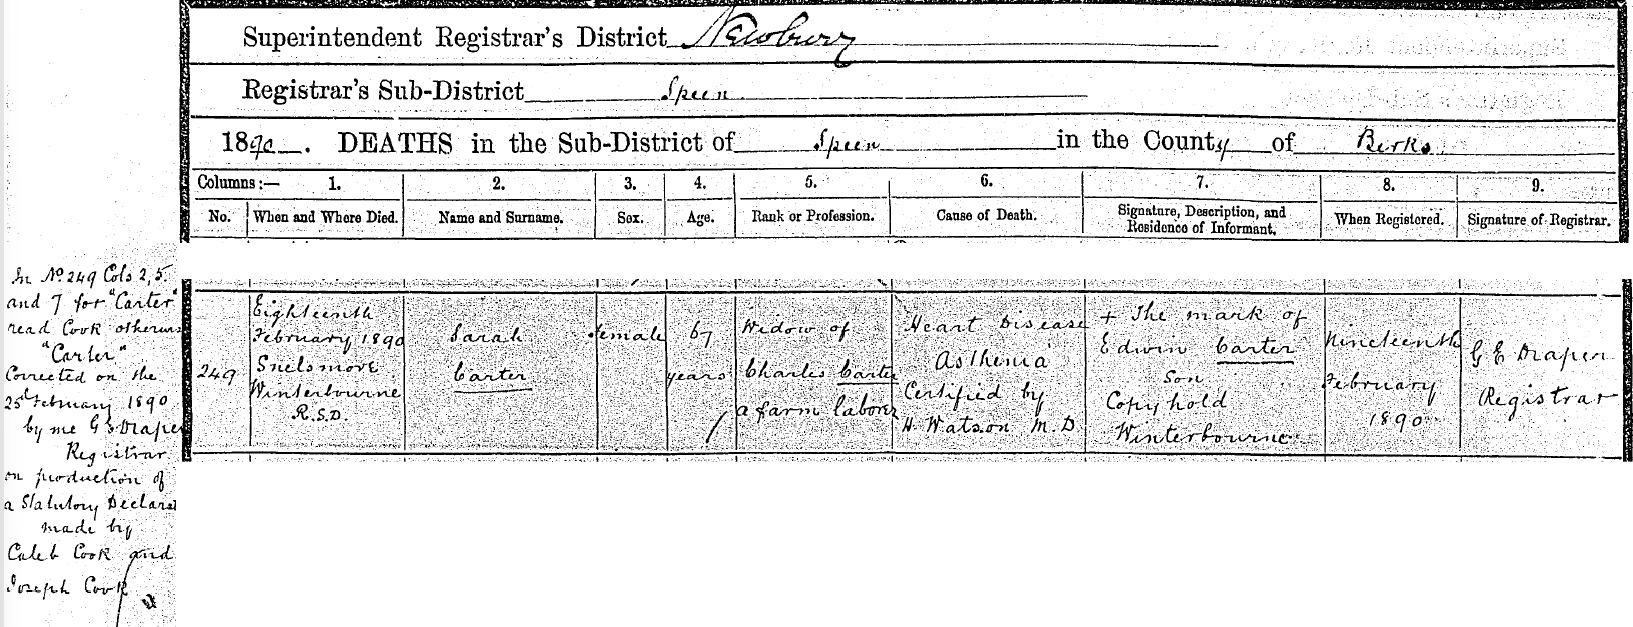 Superintendent Registrar's District Newbury
Registrar's Sub-District Speen
1890. DEATHS in the Sub-District of Speen in the County of Berks
Columns:— 1. 2. 3. 4. 5. 6. 7. 8. 9.
No. When and Where Died. Name and Surname. Sex. Age. Rank or Profession. Cause of Death. Signature, Description, and Residence of Informant. When Registered. Signature of Registrar.
249
Eighteenth
February 1890
Snelsmore
Winterbourne
R.S.D.
Sarah
Carter
Female
67
years
Widow of
Charles Carter
a farm laborer
Heart Disease
Asthenia
Certified by
H. Watson M.D
+ The mark of
Edwin Carter
Son
Copyhold
Winterbourne
Nineteenth
February
1890
G E Draper
Registrar
In No 249 Cols 2, 5.
and 7 for "Carter"
read Cook otherwise
"Carter"
Corrected on the
25th February 1890
by me G E Draper
Registrar
on production of
a Statutory Declarat
made by
Caleb Cook and
Joseph Cook